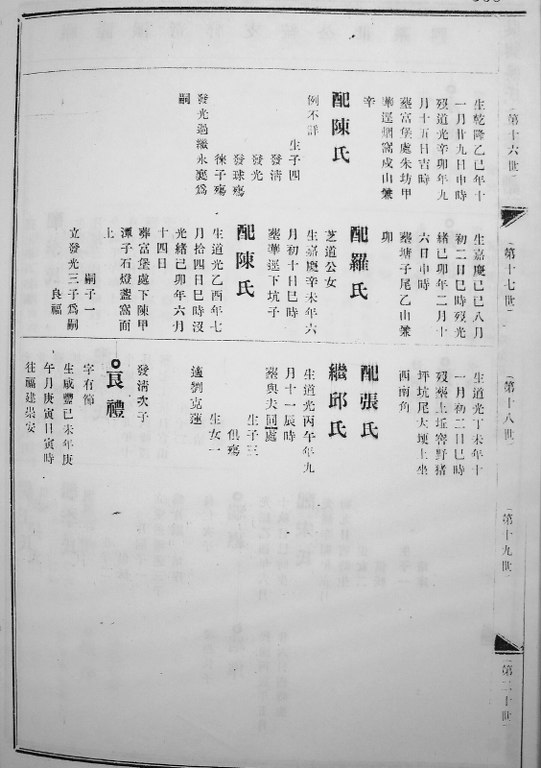 第十六世
生乾隆乙巳年十
一月廿九日申時
歿道光辛卯年九
月十五日吉時
塟富堡處朱坊甲
華逕烟窩戌山兼
辛
配陳氏
例不詳
生子四
發清
發光
發球殤
徠子殤
發光過繼永寬為
嗣
第十七世
生嘉慶己巳八月
初二日巳時歿光
緒己卯年二月十
六日申時
塟塘子尾乙山兼
卯
配羅氏
芝道公女
生嘉慶辛未年六
月初十日巳時
塟華逕下坑子
配陳氏
生道光乙酉年七
月拾四日巳時沒
光緒己卯年六月
十四日
葬富堡處下陳甲
潭子石燈盞窩面
上
嗣子一
立發光三子為嗣
良福
第十八世
生道光丁未年十
一月初二日巳時
歿塟上坵窖野猪
坪坑尾大埂上坐
西南角
配張氏
繼邱氏
生道光丙午年九
月十一辰時
塟與夫同處
生子三
俱殤
生女一
適劉克蓮
發清次子
良禮
字有節
生咸豐己未年庚
午月庚寅日寅時
往福建崇安
第十九世
第二十世